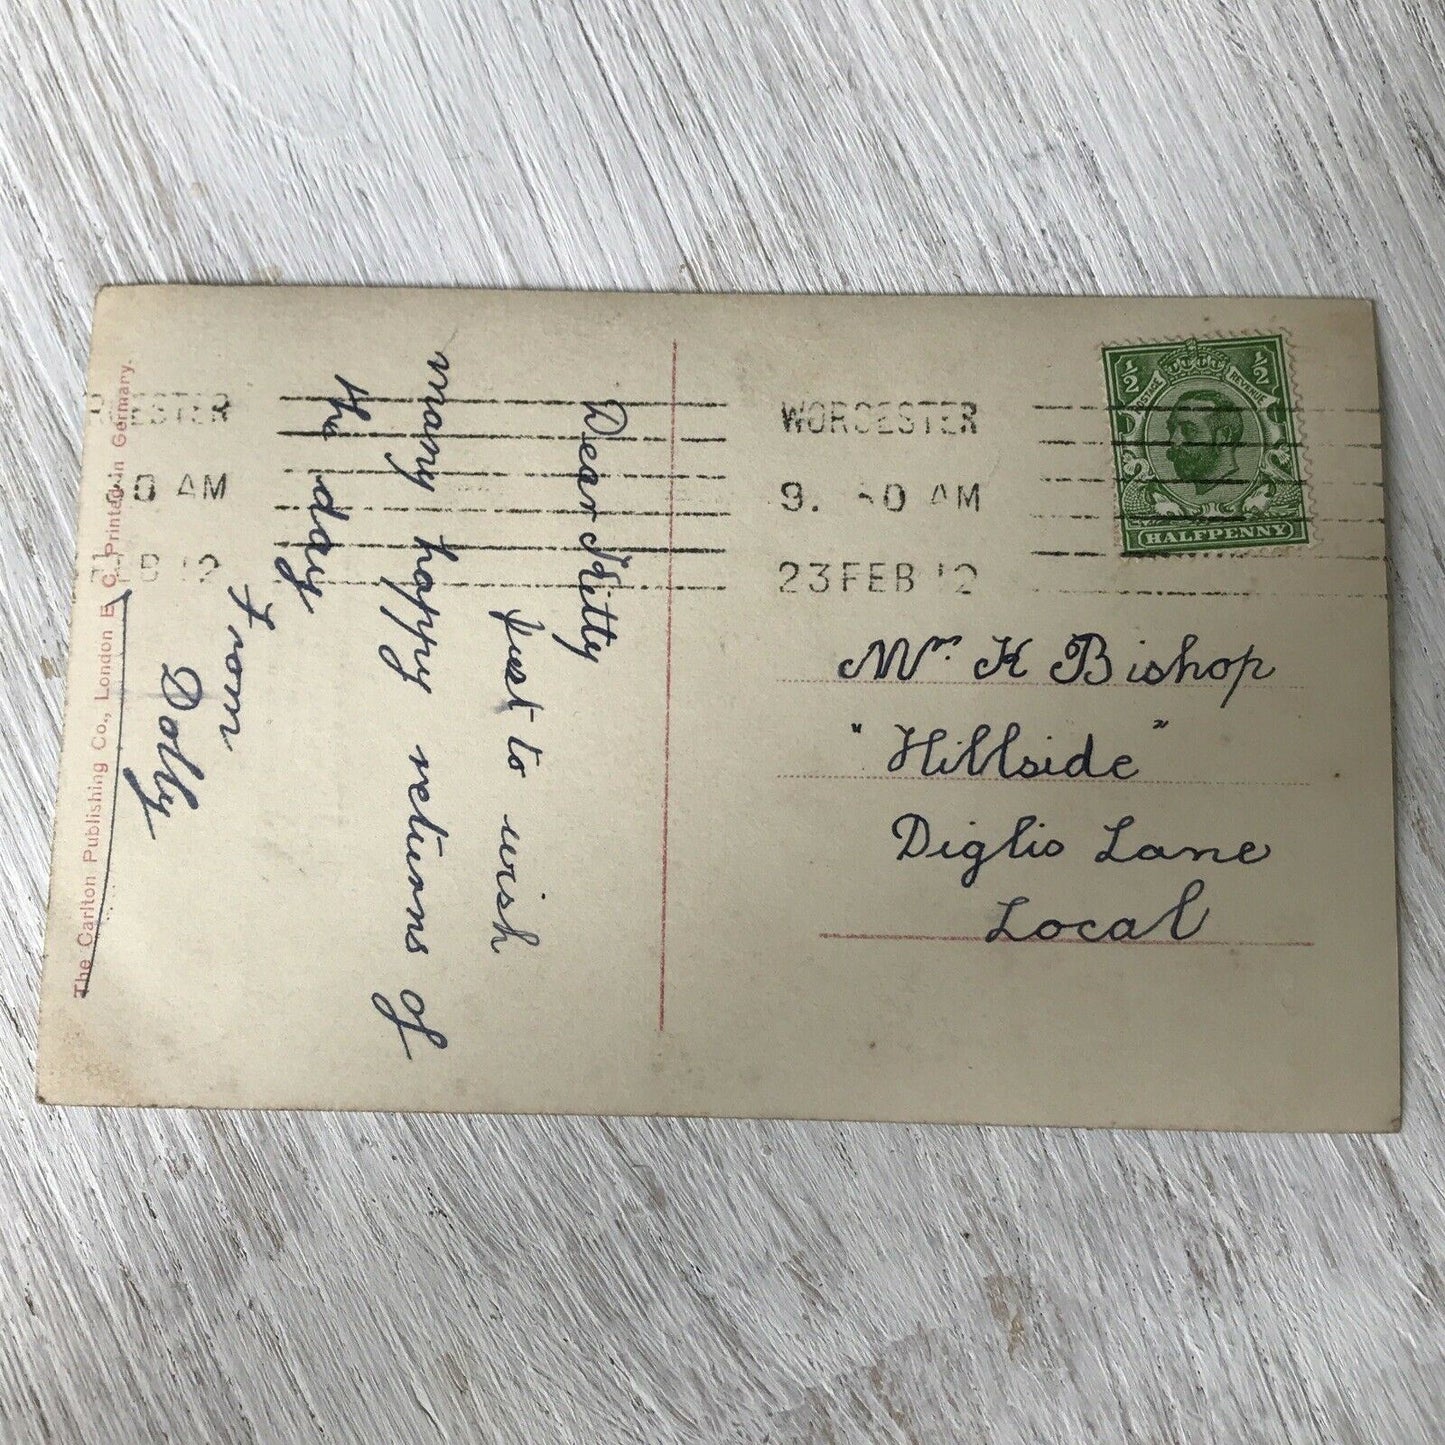 The Carlton Publishing Co., London E. C. Printed in Germany.
WORCESTER
AM
Dear Kitty
Just to wish
many happy returns of
the day
From
Dolly
WORCESTER
AM
23 FEB 12
1/2 1/2
POSTAGE REVENUE
HALFPENNY
Mrs. K Bishop
"Hillside"
Diglis Lane
Local